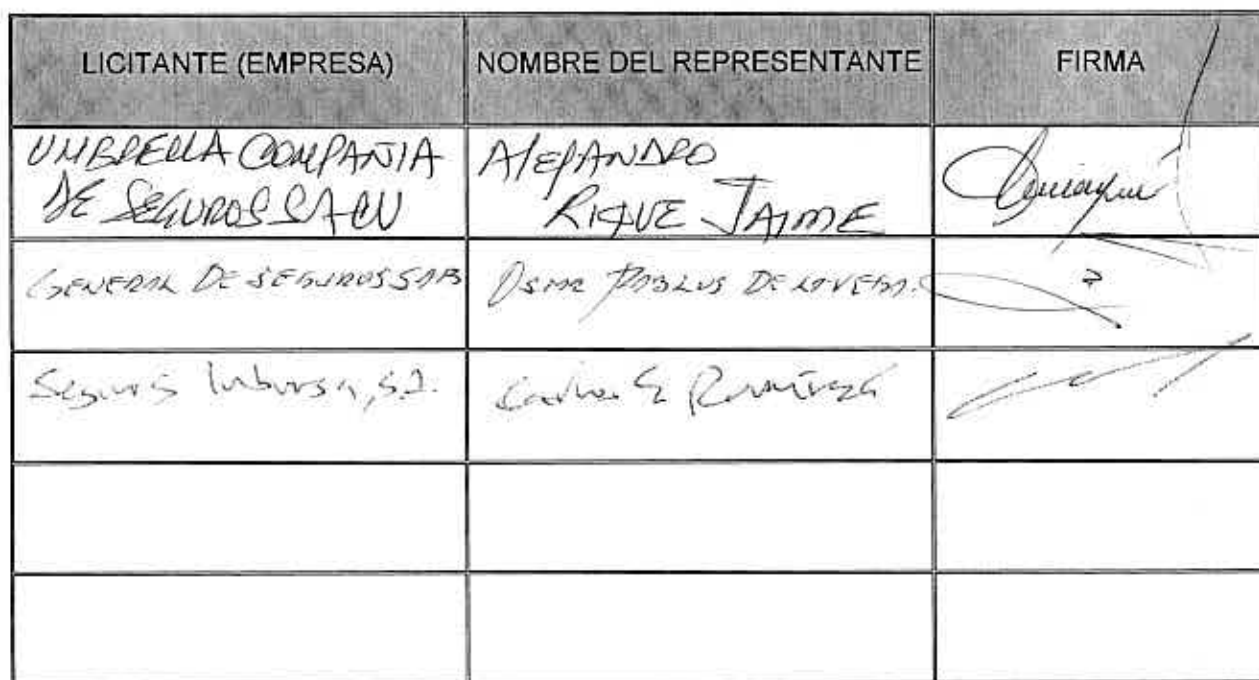 LICITANTE (EMPRESA) NOMBRE DEL REPRESENTANTE FIRMA
UMBRELLA COMPAÑIA ALEJANDRO
DE SEGUROS SA CV RIQUE JAIME
GENERAL DE SEGUROS SAB OSMR PABLOS DE LA VEGA.
Seguros Inbursa, S.A. Carlos E Ramírez G